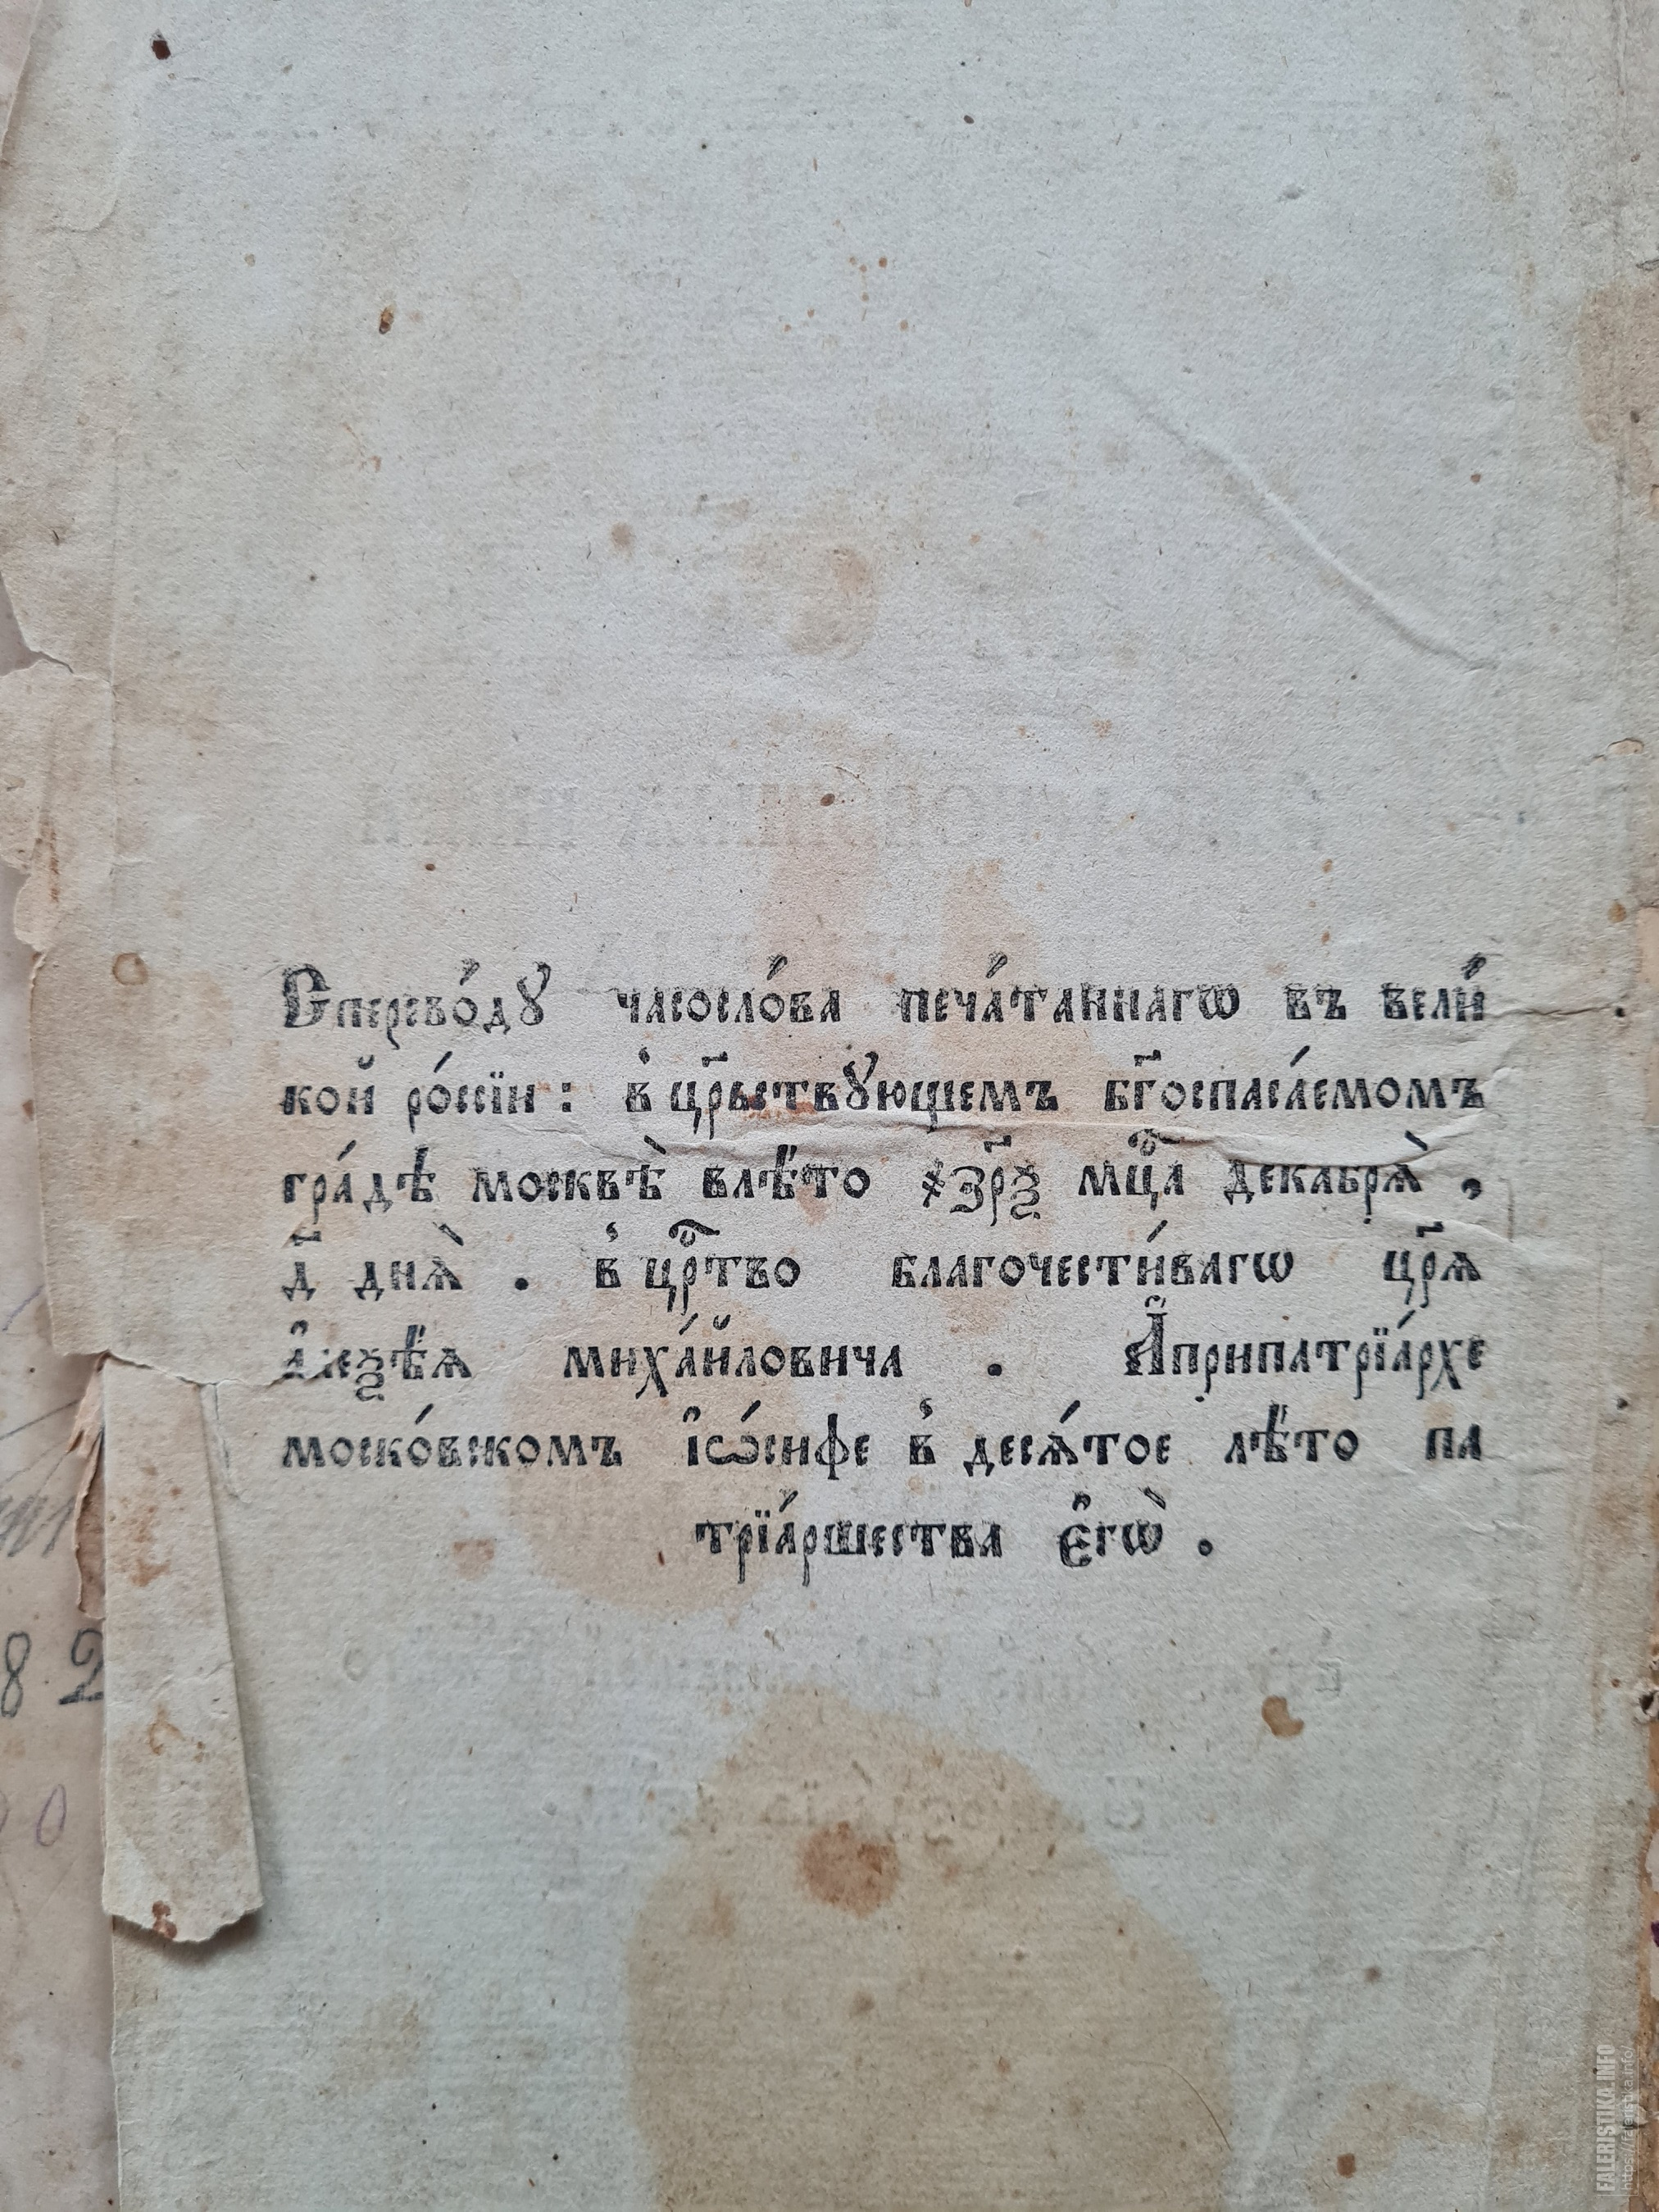 Сперево́дꙋ часосло́ва печа́таннагѡ въ вели́
кой ро́ссїи: в҆ цр҃ьствꙋющемъ бг҃оспаса́емомъ
гра́дѣ москвѣ̀ влѣ́то ҂зрѯ҃ мц҃а декабрѧ̀ ,
д҃ днѧ̀ . в҆ црⷭ҇тво благочести́вагѡ цр҃ѧ
а҆леѯѣ́ѧ миха́йловича . А҆припатрїа́рхе
моско́вскомъ і҆ѡ́сифе в҆ десѧ́тое лѣ́то па
трїа́ршества є҆гѡ̀ .
82
0
FALERISTIKA.INFO
https://faleristika.info/